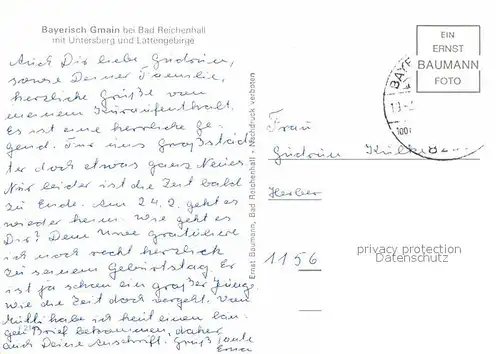 Bayerisch Gmain bei Bad Reichenhall
mit Untersberg und Lattengebirge
Auch Dir liebe Gudrun,
sowie Deiner Familie,
herzliche Grüße von
meinem Kuraufenthalt.
Es ist eine herrliche Ge-
gend. Für uns Großstäd
ter doch etwas ganz Neues
Nur leider ist die Zeit bald
zu Ende. Am 24.2. geht es
wieder heim. Wie geht es
Dir? Dem Uwe gratuliere
ich noch recht herzlich
zu seinem Geburtstag. Er
ist ja schon ein großer Junge.
Wie die Zeit doch vergeht. Von
habe ich heut einen lan-
gen Brief bekommen, daher
auch Deine Anschrift. Gruß Tante
Erna
Ernst Baumann, Bad Reichenhall · Nachdruck verboten
EIN
ERNST
BAUMANN
FOTO
BAYE
Frau
Gudrun
Herber
1156
privacy protection
Datenschutz